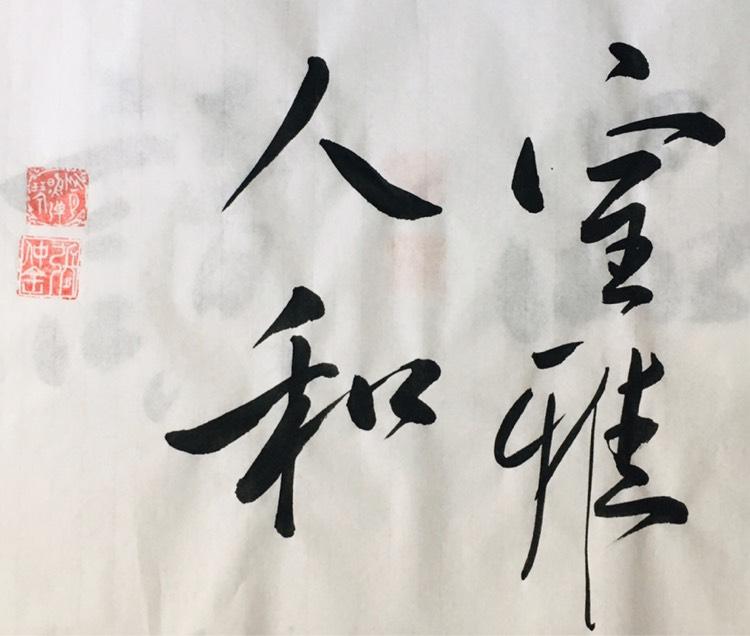 室雅
人和